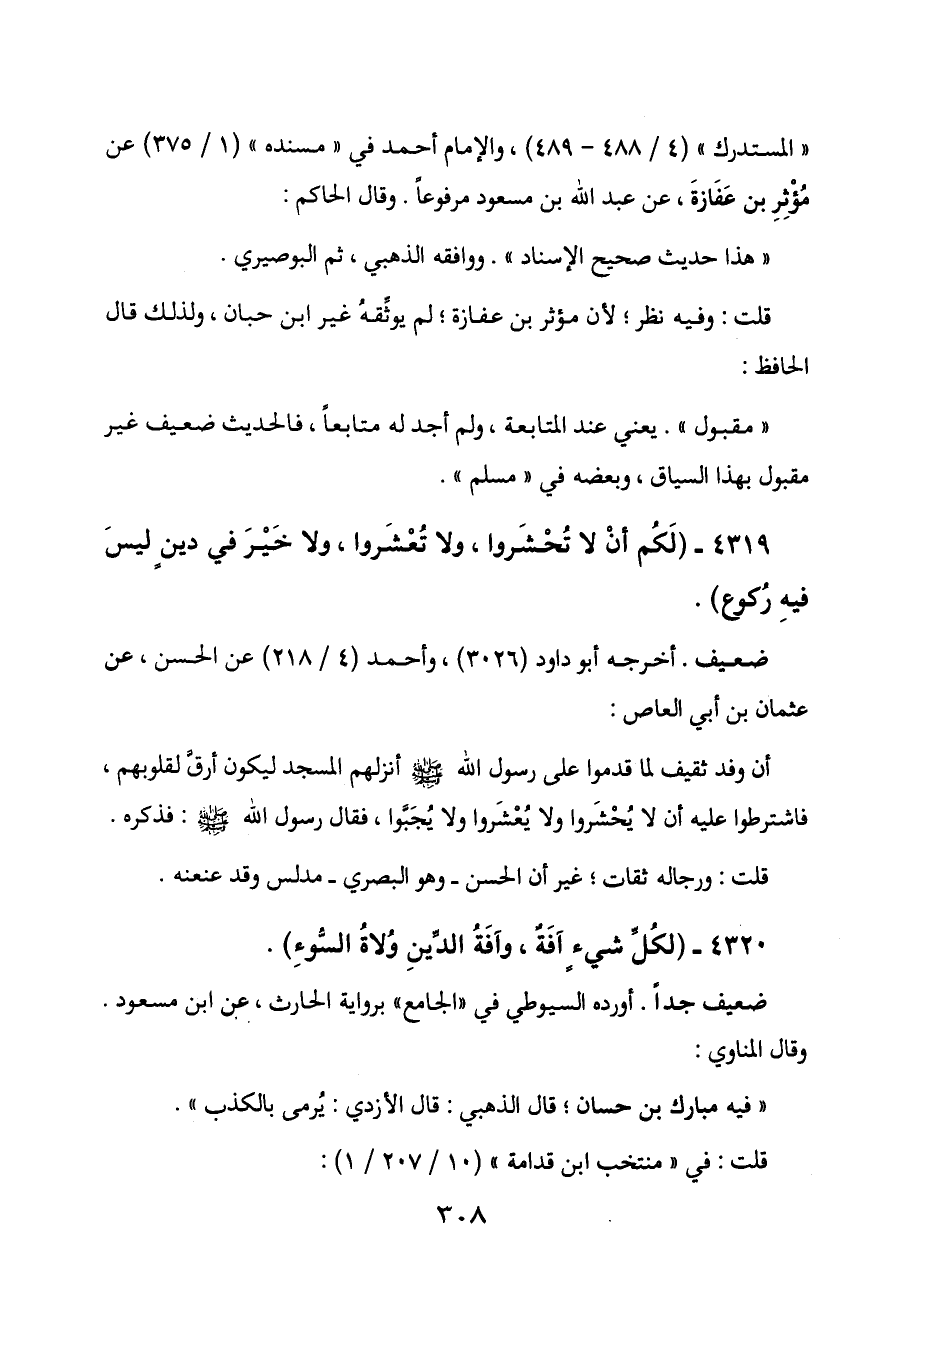 « المستدرك » (٤ / ٤٨٨ – ٤٨٩) ، والإمام أحمد في « مسنده » (١ / ٣٧٥) عن
مُؤْثِرِ بن عَفَازةَ ، عن عبد الله بن مسعود مرفوعاً . وقال الحاكم :
« هذا حديث صحيح الإسناد » . ووافقه الذهبي ، ثم البوصيري .
قلت : وفيه نظر ؛ لأن مؤثر بن عفازة ؛ لم يوثِّقهُ غير ابن حبان ، ولذلك قال
الحافظ :
« مقبول » . يعني عند المتابعة ، ولم أجد له متابعاً ، فالحديث ضعيف غير
مقبول بهذا السياق ، وبعضه في « مسلم » .
٤٣١٩ ـ (لَكُم أنْ لا تُحْشَروا ، ولا تُعْشَروا ، ولا خَيْرَ في دينٍ ليسَ
فيهِ رُكوع) .
ضعيف . أخرجه أبو داود (٣٠٢٦) ، وأحمد (٤ / ٢١٨) عن الحسن ، عن
عثمان بن أبي العاص :
أن وفد ثقيف لما قدموا على رسول الله ﷺ أنزلهم المسجد ليكون أرقَّ لقلوبهم ،
فاشترطوا عليه أن لا يُحْشَروا ولا يُعْشَروا ولا يُجَبَّوا ، فقال رسول الله ﷺ : فذكره .
قلت : ورجاله ثقات ؛ غير أن الحسن ـ وهو البصري ـ مدلس وقد عنعنه .
٤٣٢٠ ـ (لكُلِّ شيءٍ آفَةٌ ، وآفَةُ الدِّينِ وُلاةُ السُّوءِ) .
ضعيف جداً . أورده السيوطي في «الجامع» برواية الحارث ، عن ابن مسعود .
وقال المناوي :
« فيه مبارك بن حسان ؛ قال الذهبي : قال الأزدي : يُرمى بالكذب » .
قلت : في « منتخب ابن قدامة » (١٠ / ٢٠٧ / ١) :
٣٠٨